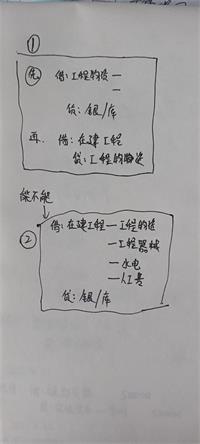 ①
先. 借: 工程物资 —
—
贷: 银/库
再. 借: 在建工程
贷: 工程物资
能不能
② 借: 在建工程 — 工程物资
— 工程器械
— 水电
— 人工费
贷: 银/库